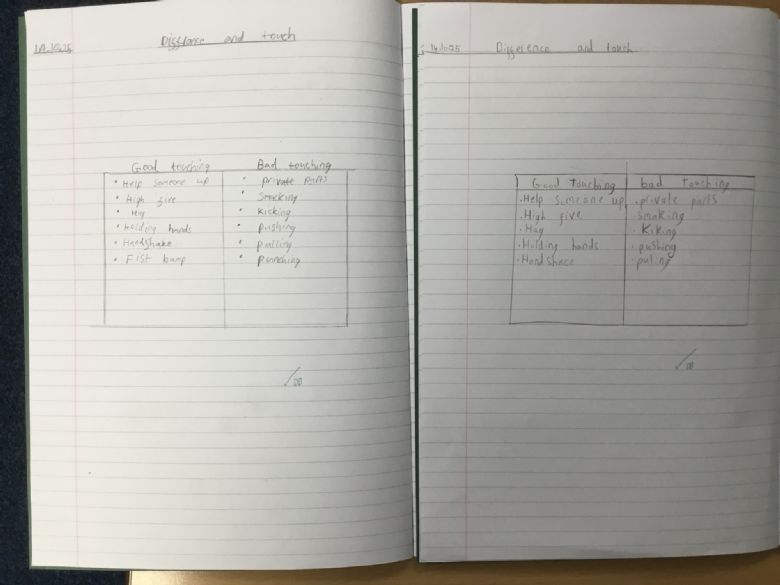 14.10.25 Disstance and touch
Good touching Bad touching
• Help someone up • private parts
• High five • Smocking
• Hug • Kicking
• Holding hands • pushing
• Handshake • pulling
• Fist bump • punching
14.10.25 Difference and touch
Good Touching bad Touching
• Help someone up • private parts
• High five • smoking
• Hug • Kiking
• Holding hands • pushing
• Handshace • puling